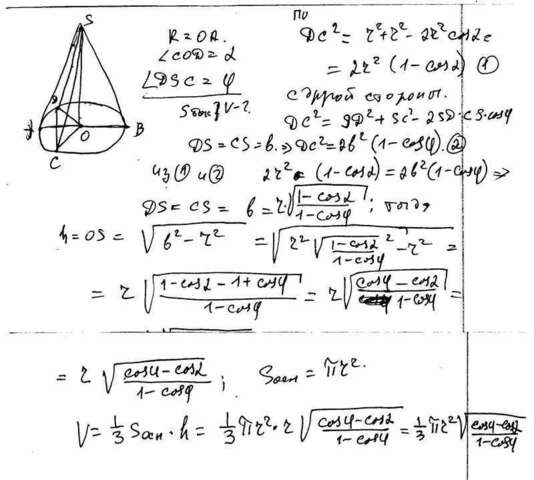 S
D
A
O
B
C
R = OA.
∠COD = α
∠DSC = φ
Sбок} V - ?
По
DC² = r² + r² - 2r² cos α
= 2r² (1 - cos α) ①
с другой стороны.
DC² = SD² + SC² - 2SD·CS·cosφ
DS = CS = b. ⇒ DC² = 2b² (1 - cosφ). ②
из ① и ② 2r² (1 - cos α) = 2b² (1 - cosφ) ⇒
DS = CS = b = r·√((1 - cos α)/(1 - cosφ)) ; тогда
h = OS = √(b² - r²) = √(r² √((1 - cos α)/(1 - cosφ))² - r²) =
= r √((1 - cos α - 1 + cosφ)/(1 - cosφ)) = r √((cosφ - cos α)/(1 - cosφ)) =
= r √((cosφ - cos α)/(1 - cosφ)) ; Sосн = πr².
V = 1/3 Sосн · h = 1/3 πr² · r √((cosφ - cos α)/(1 - cosφ)) = 1/3 πr² √((cosφ - cos α)/(1 - cosφ))